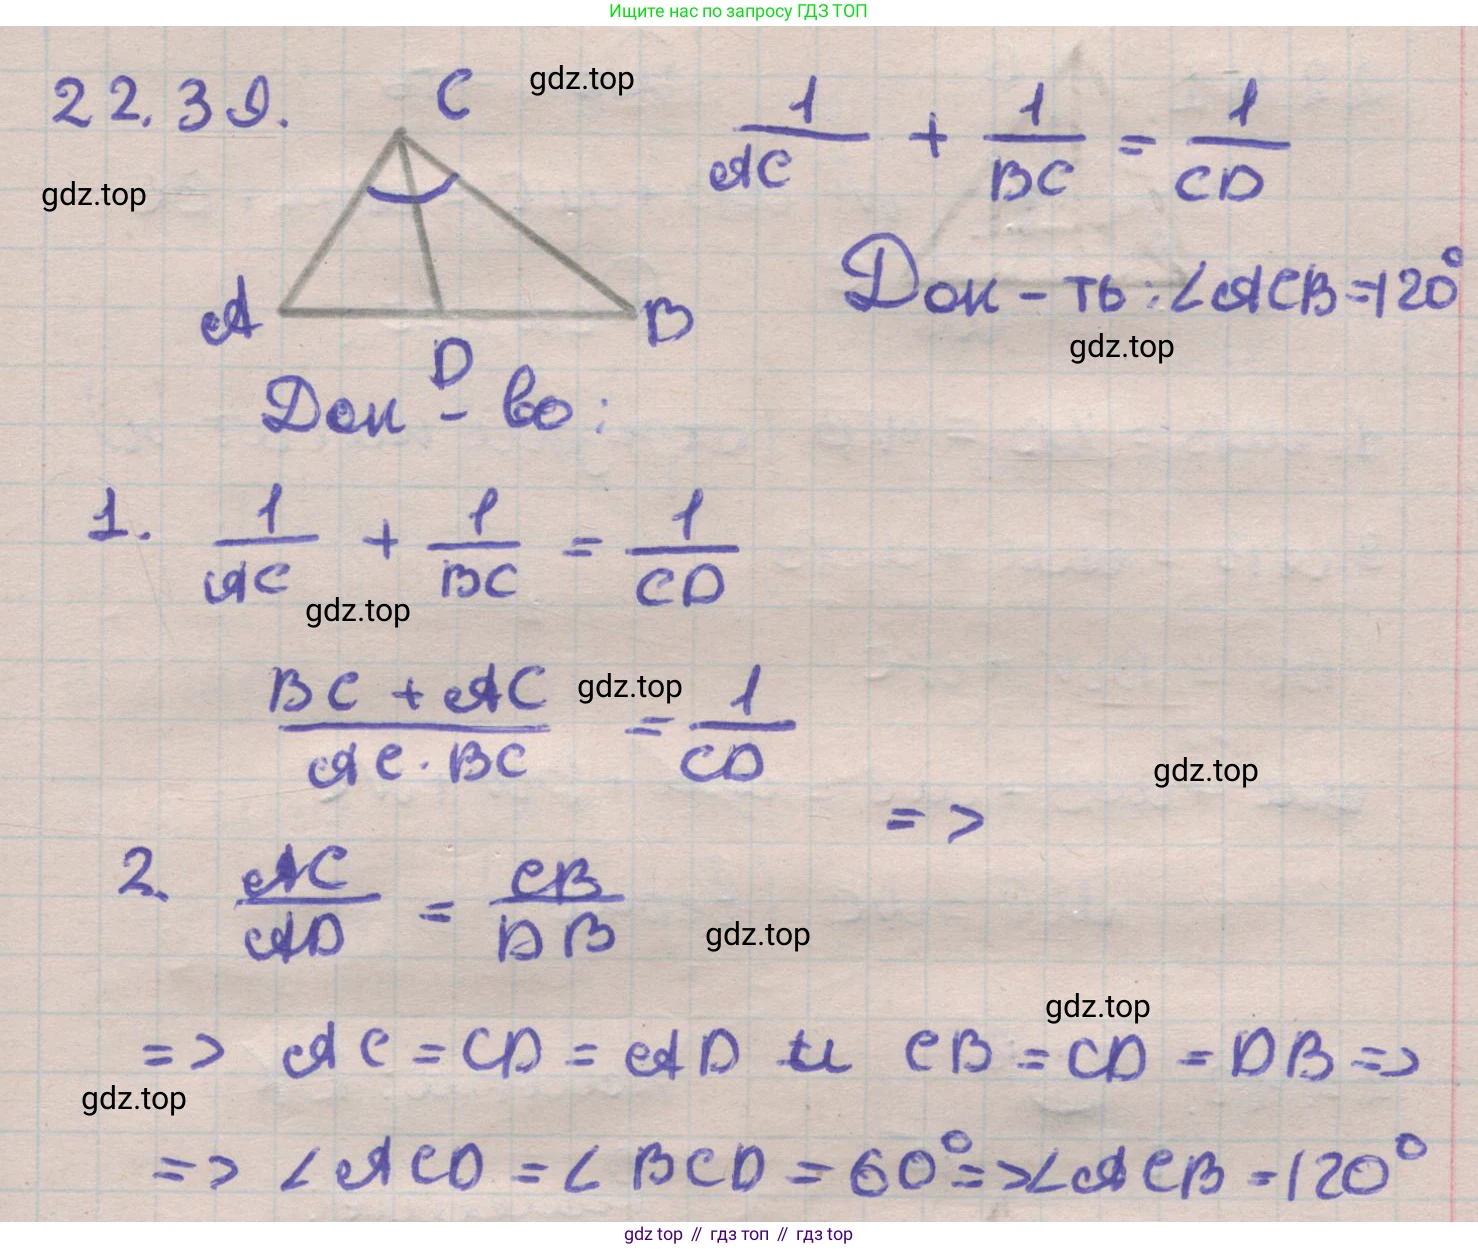 Ищите нас по запросу ГДЗ ТОП
22.39.
C
gdz.top
1/AC + 1/BC = 1/CD
gdz.top
A
B
D
Док-ть: ∠ACB=120°
gdz.top
Док-во:
1. 1/AC + 1/BC = 1/CD
gdz.top
(BC + AC)/(AC · BC) = 1/CD
gdz.top
gdz.top
=>
2. AC/AD = CB/DB
gdz.top
gdz.top
=> AC = CD = AD и CB = CD = DB =>
gdz.top
=> ∠ACD = ∠BCD = 60° => ∠ACB = 120°
gdz.top // гдз топ // гдз top